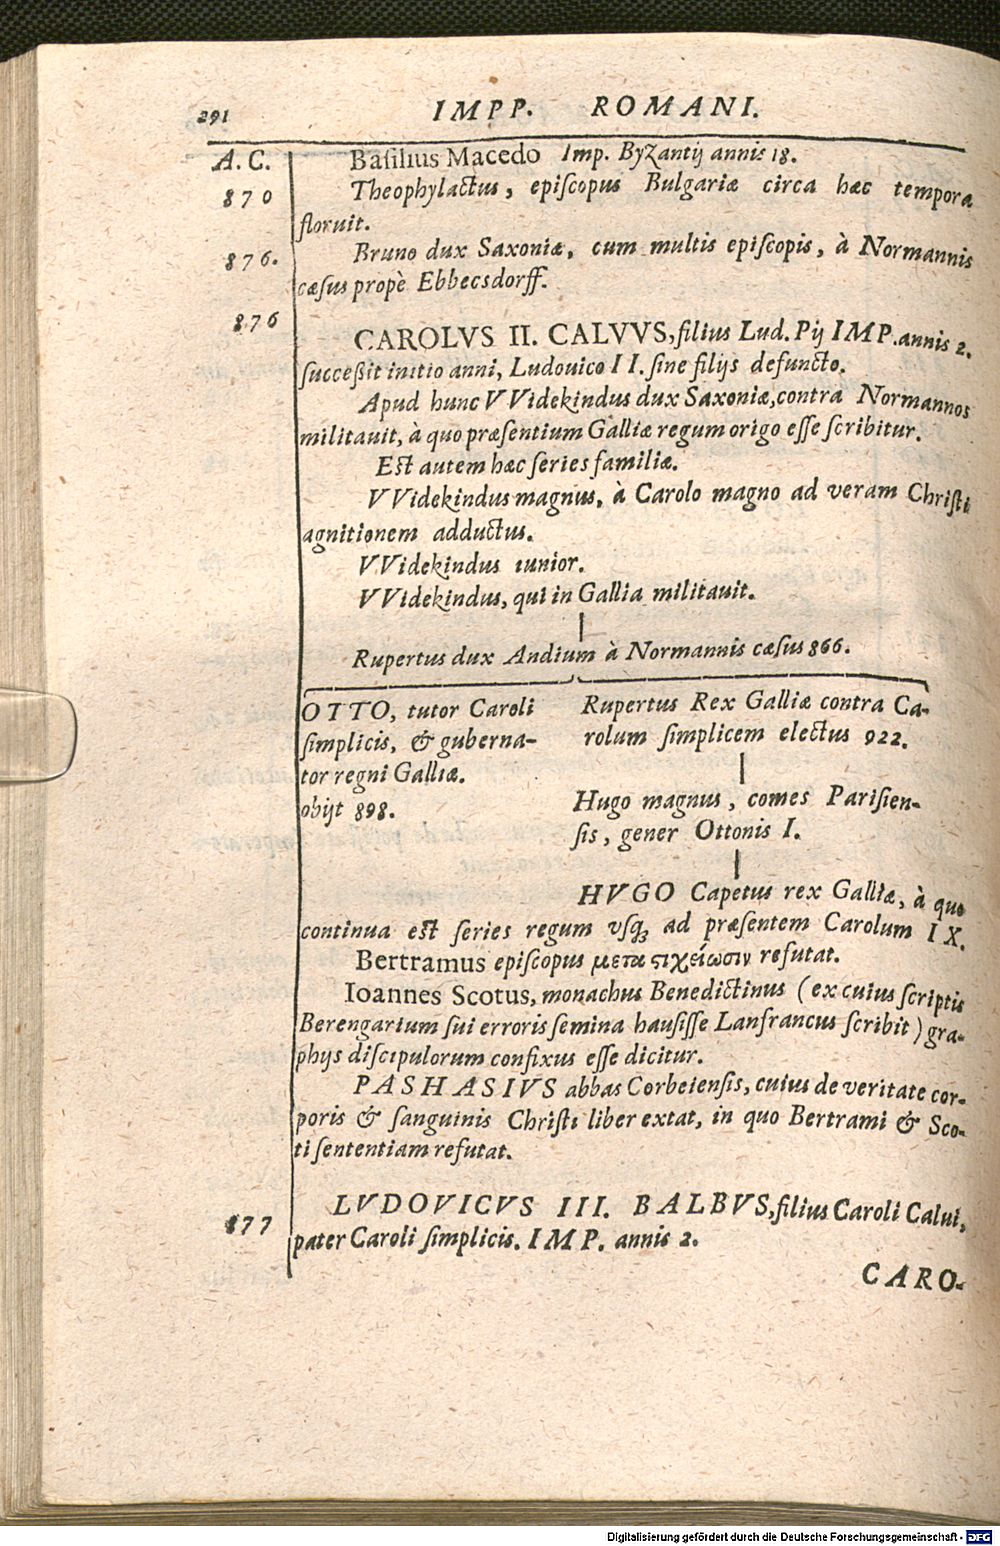 291 IMPP. ROMANI.
A. C. Basilius Macedo Imp. Byzantij annis 18.
870 Theophylactus, episcopus Bulgariæ circa hæc tempora
floruit.
876. Bruno dux Saxoniæ, cum multis episcopis, à Normannis
cæsus propè Ebbecsdorff.
876 CAROLVS II. CALVVS, filius Lud. Pij IMP. annis 2.
successit initio anni, Ludouico II. sine filijs defuncto.
Apud hunc VVidekindus dux Saxoniæ, contra Normannos
militauit, à quo præsentium Galliæ regum origo esse scribitur.
Est autem hæc series familiæ.
VVidekindus magnus, à Carolo magno ad veram Christi
agnitionem adductus.
VVidekindus iunior.
VVidekindus, qui in Gallia militauit.
Rupertus dux Andium à Normannis cæsus 866.
OTTO, tutor Caroli
simplicis, & guberna-
tor regni Galliæ.
obijt 898.
Rupertus Rex Galliæ contra Ca-
rolum simplicem electus 922.
Hugo magnus, comes Parisien-
sis, gener Ottonis I.
HVGO Capetus rex Galliæ, à quo
continua est series regum vsq; ad præsentem Carolum IX.
Bertramus episcopus μετα στιχείωσιν refutat.
Ioannes Scotus, monachus Benedictinus (ex cuius scriptis
Berengarium sui erroris semina hausisse Lanfrancus scribit) gra-
phijs discipulorum confixus esse dicitur.
PASHASIVS abbas Corbeiensis, cuius de veritate cor-
poris & sanguinis Christi liber extat, in quo Bertrami & Sco-
ti sententiam refutat.
877 LVDOVICVS III. BALBVS, filius Caroli Calui,
pater Caroli simplicis. IMP. annis 2.
CARO-
Digitalisierung gefördert durch die Deutsche Forschungsgemeinschaft - DFG